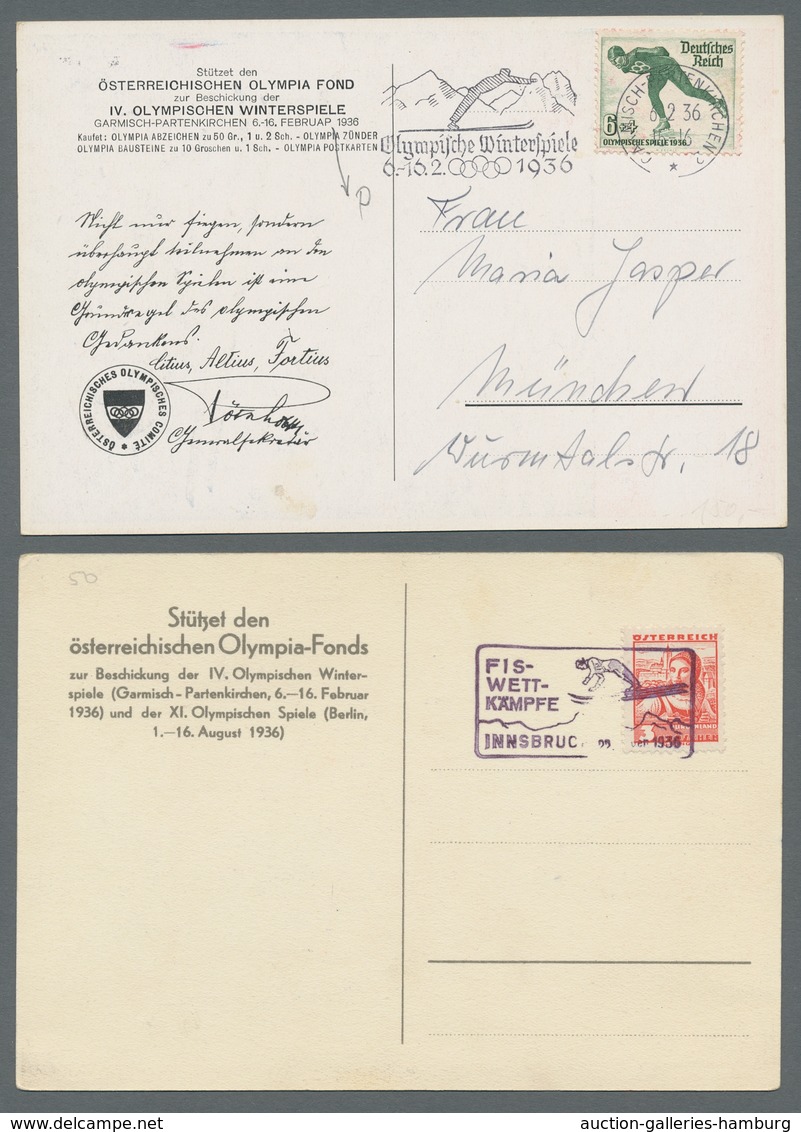 Stützet den
ÖSTERREICHISCHEN OLYMPIA FOND
zur Beschickung der
IV. OLYMPISCHEN WINTERSPIELE
GARMISCH-PARTENKIRCHEN 6.-16. FEBRUAR 1936
Kaufet: OLYMPIA ABZEICHEN zu 50 Gr., 1 u. 2 Sch. - OLYMPIA ZÜNDER
OLYMPIA BAUSTEINE zu 10 Groschen u. 1 Sch. - OLYMPIA POSTKARTEN
Olympische Winterspiele
6.-16.2. 1936
Deutsches
Reich
6+4
OLYMPISCHE SPIELE 1936
6 2 36
Nicht nur siegen, sondern
überhaupt teilnehmen an den
olympischen Spielen ist eine
Grundregel des olympischen
Gedankens.
Citius, Altius, Fortius
Generalsekretär
ÖSTERREICHISCHES OLYMPISCHES COMITÉ
Frau
Maria Jasper
München
Wurmtalstr. 18
150,-
50
Stützet den
österreichischen Olympia-Fonds
zur Beschickung der IV. Olympischen Winter-
spiele (Garmisch-Partenkirchen, 6.—16. Februar
1936) und der XI. Olympischen Spiele (Berlin,
1.—16. August 1936)
FIS-
WETT-
KÄMPFE
INNSBRUC 1936
ÖSTERREICH
3
auction-galleries-hamburg